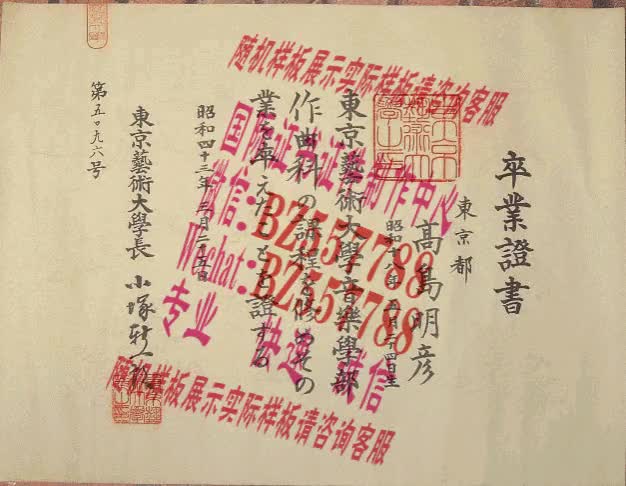 卒業證書
東京都
髙島明彦
昭和十八年五月二十四日生
東京藝術大學音樂學部
作曲科の課程を修めその
業を卒えたことを證する
昭和四十三年三月二十五日
東京藝術大學長
第五〇九六号
随机样板展示实际样板请咨询客服
国际证 制作中心
微信:BZ557788
Wechat:BZ557788
专业 快速 诚信
随机样板展示实际样板请咨询客服